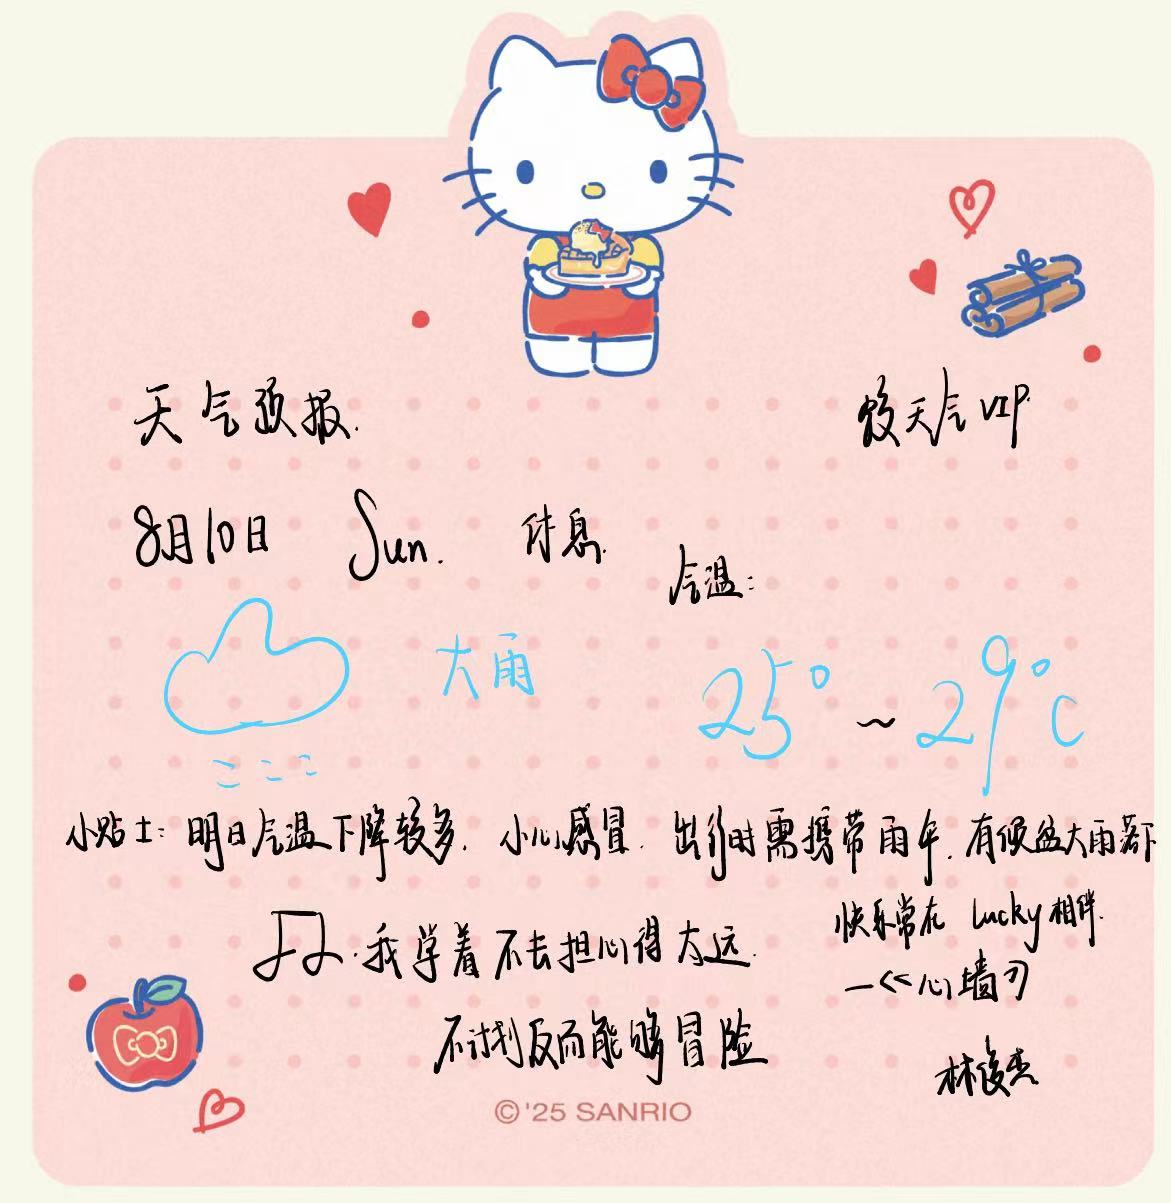 天气预报.
饺天气VIP.
8月10日 Sun. 休息.
气温：
大雨 25° ~ 29℃
小贴士：明日气温下降较多. 小心感冒. 出行时需携带雨伞. 有倾盆大雨落下
快乐常在 lucky相伴.
我学着不去担心得太远.
不计划反而能够冒险
—《心墙》
林俊杰
© '25 SANRIO